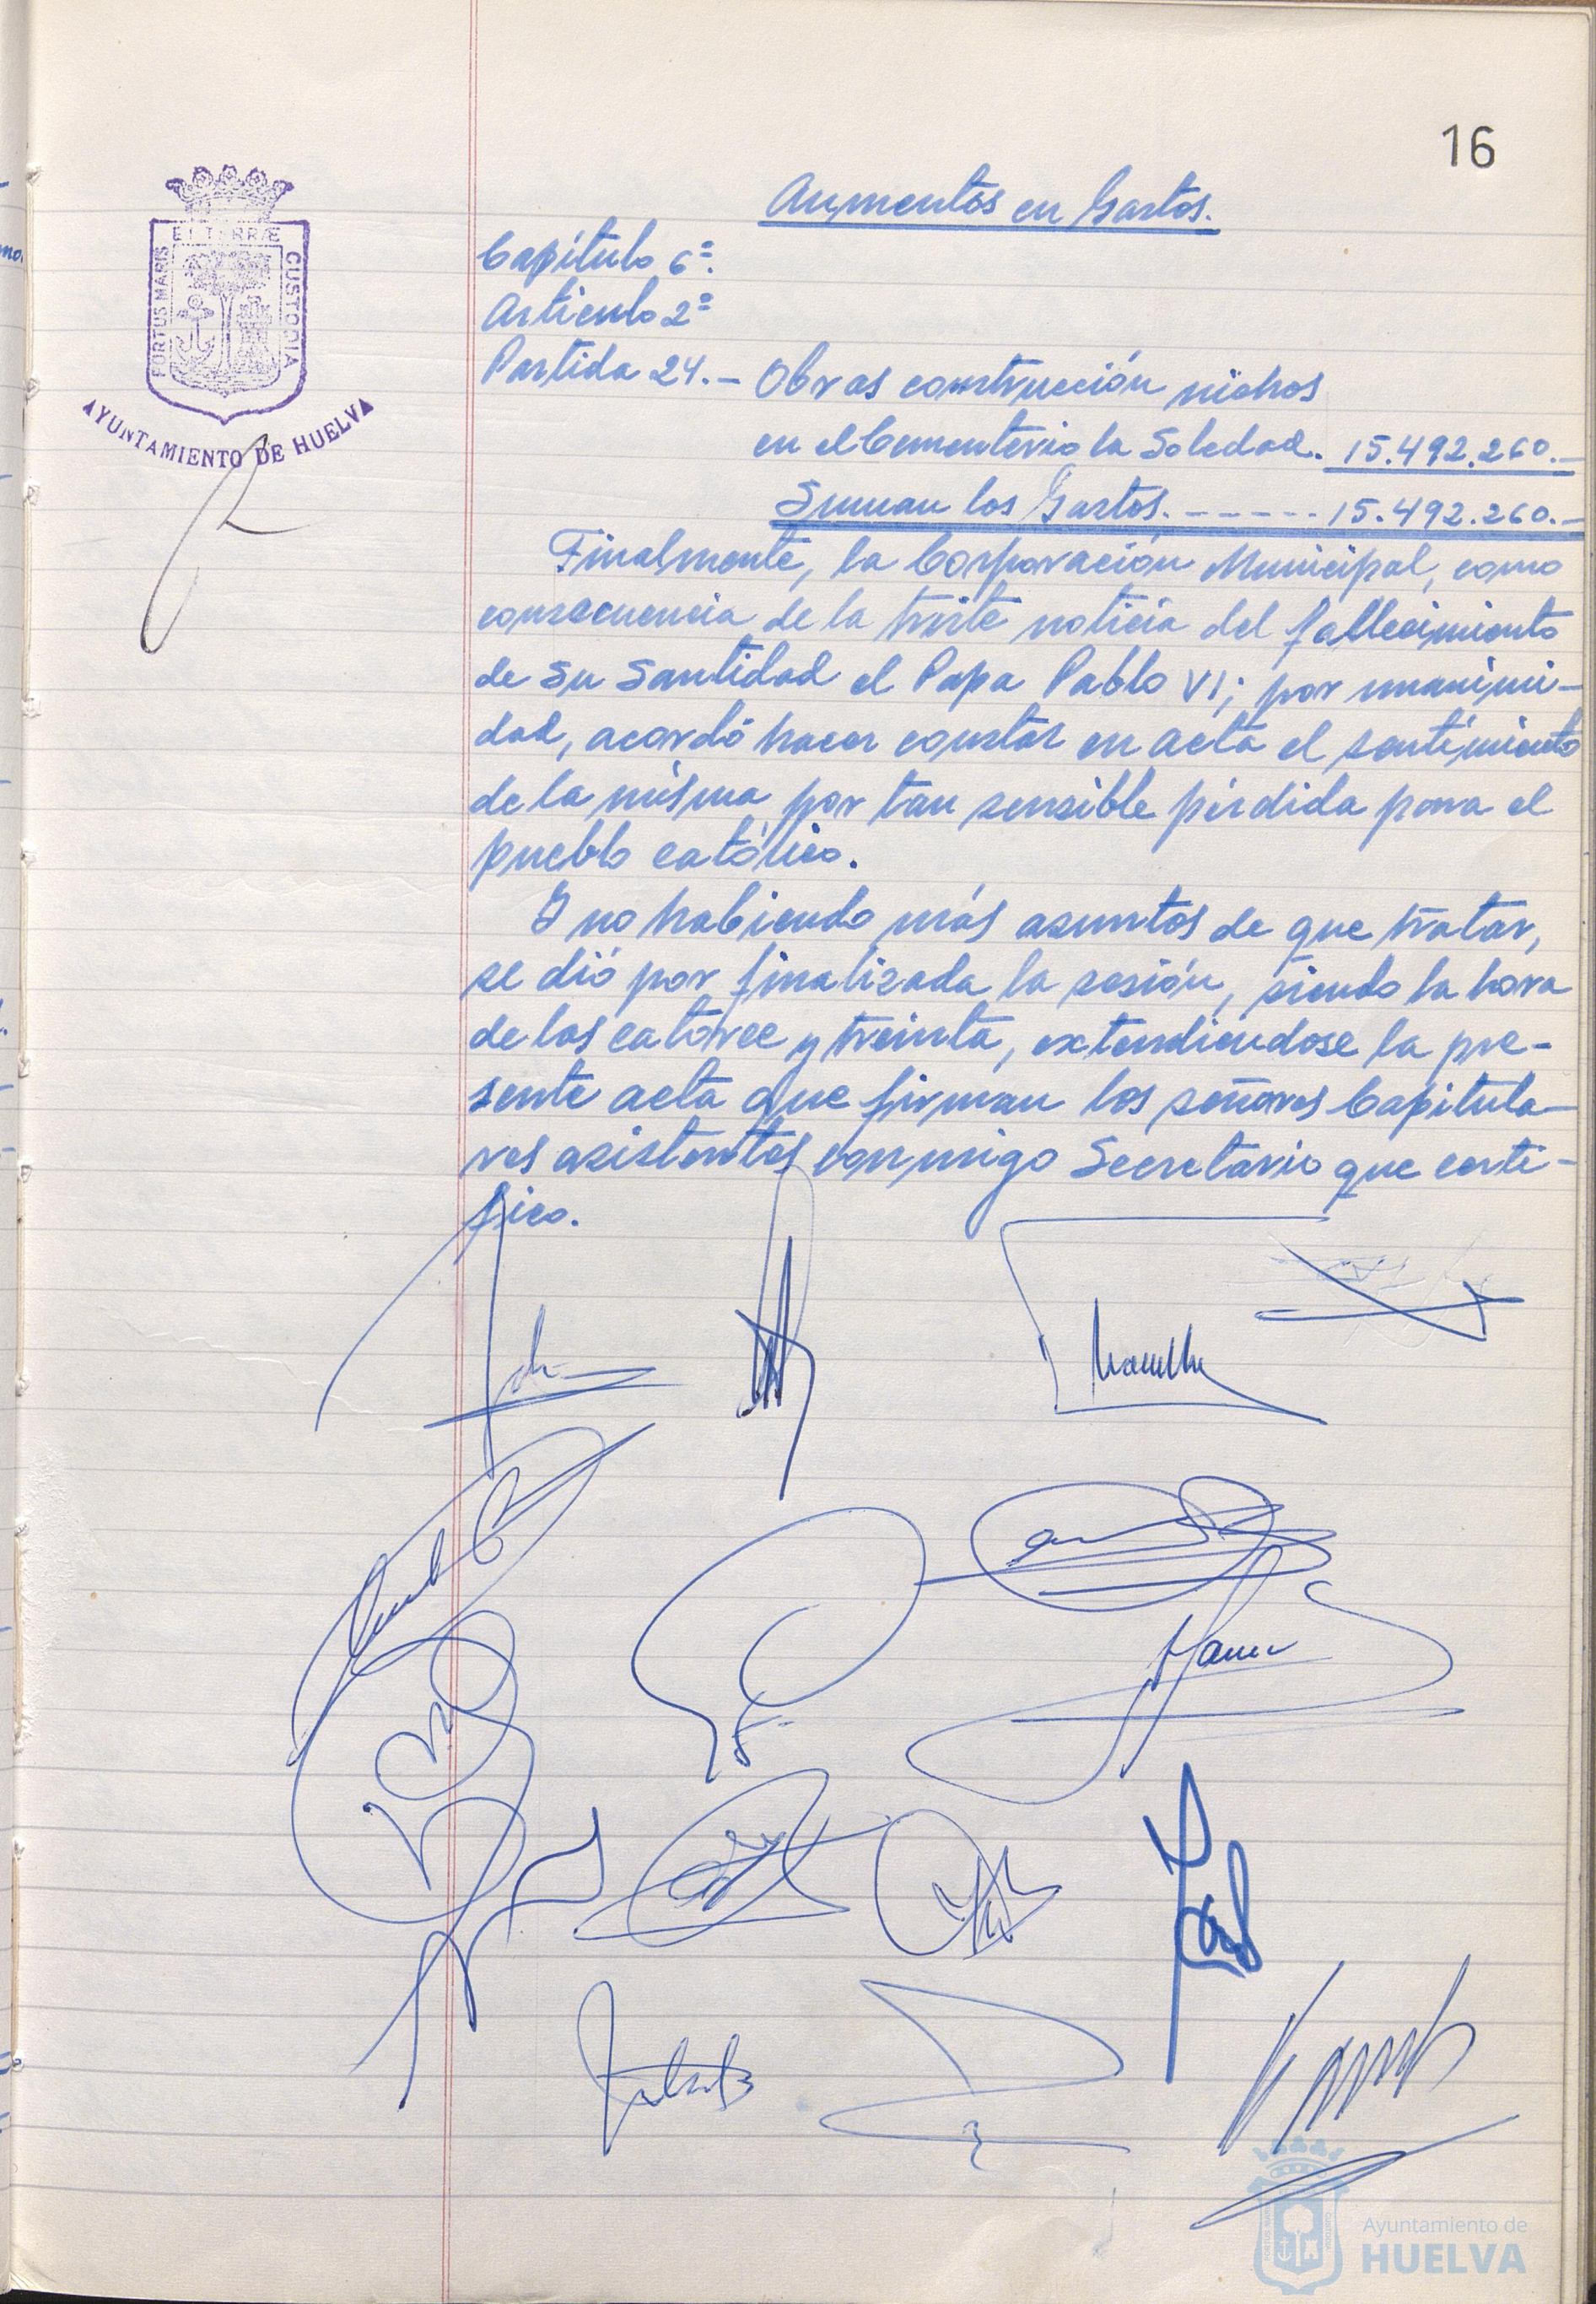 16
PORTUS MARIS
ET TERRÆ
CUSTODIA
AYUNTAMIENTO DE HUELVA
Aumentos en Gastos.
Capítulo 6º.
Artículo 2º
Partida 24.- Obras construcción nichos
en el Cementerio la Soledad. 15.492.260.-
Suman los Gastos. ----- 15.492.260.-
Finalmente, la Corporación Municipal, como
consecuencia de la triste noticia del fallecimiento
de Su Santidad el Papa Pablo VI; por unanimi-
dad, acordó hacer constar en acta el sentimiento
de la misma por tan sensible pérdida para el
pueblo católico.
Y no habiendo más asuntos de que tratar,
se dió por finalizada la sesión, siendo la hora
de las catorce y treinta, extendiendose la pre-
sente acta que firman los señores Capitula-
res asistentes conmigo Secretario que certi-
fico.
Ayuntamiento de
HUELVA